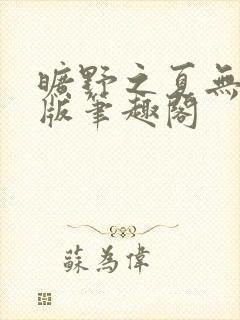 曠野之夏無
版筆趣閣
蘇為偉